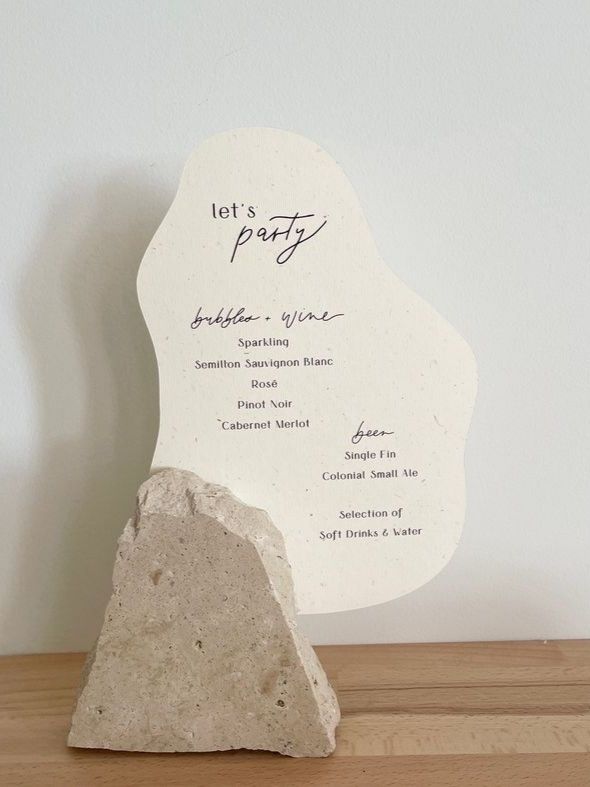 let's
party
bubbles + wine
Sparkling
Semillon Sauvignon Blanc
Rosé
Pinot Noir
Cabernet Merlot
beer
Single Fin
Colonial Small Ale
Selection of
Soft Drinks & Water